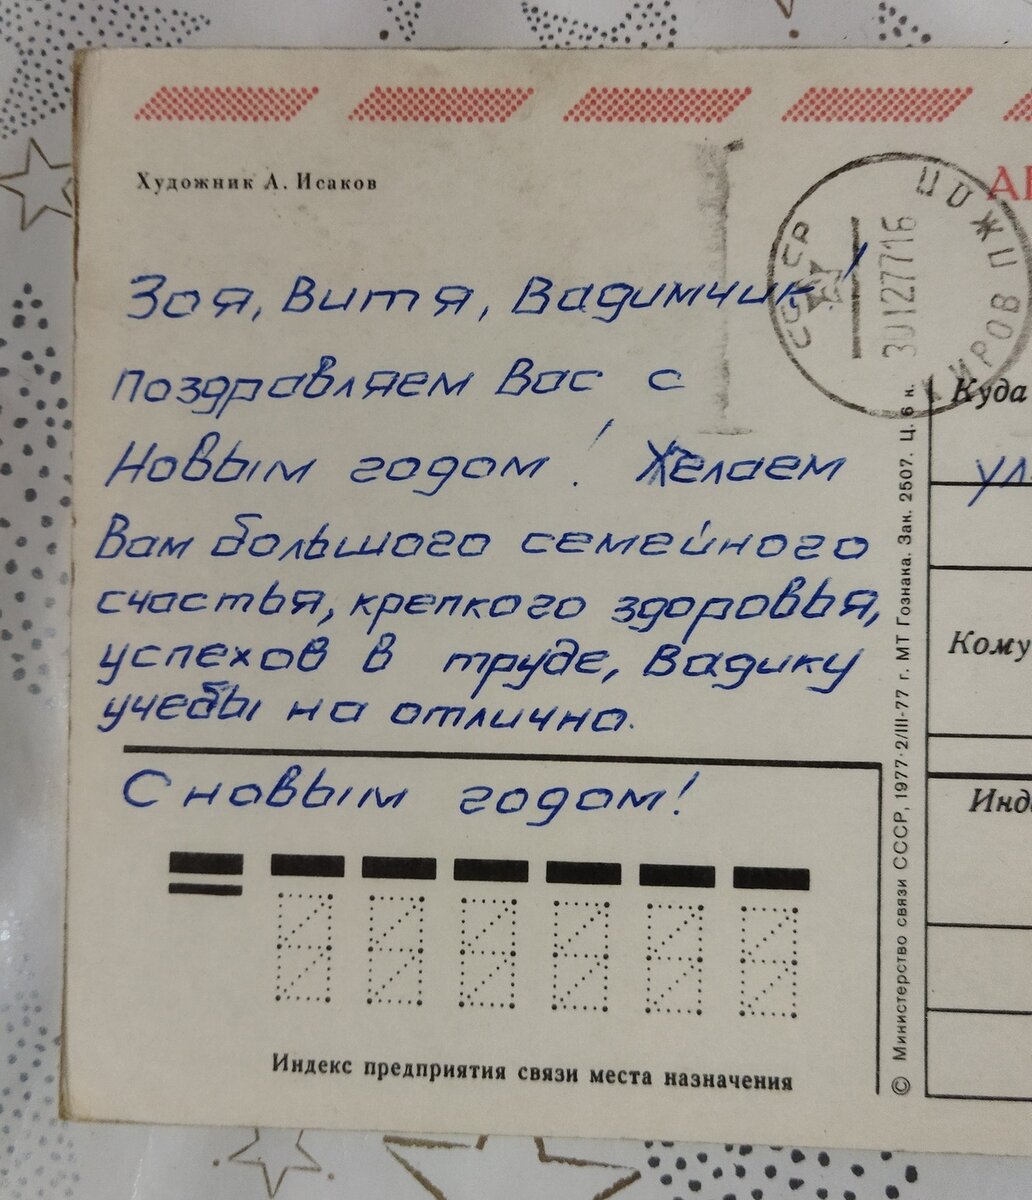 Художник А. Исаков
СССР
КИРОВ
ПОЖП
30127716
Зоя, Витя, Вадимчик!
поздравляем Вас с
Новым годом! Желаем
Вам большого семейного
счастья, крепкого здоровья,
успехов в труде, Вадику
учебы на отлично.
С новым годом!
Индекс предприятия связи места назначения
© Министерство связи СССР, 1977·2/III-77 г. МТ Гознака. Зак. 2507. Ц. 6 к.
Куда
ул.
Кому